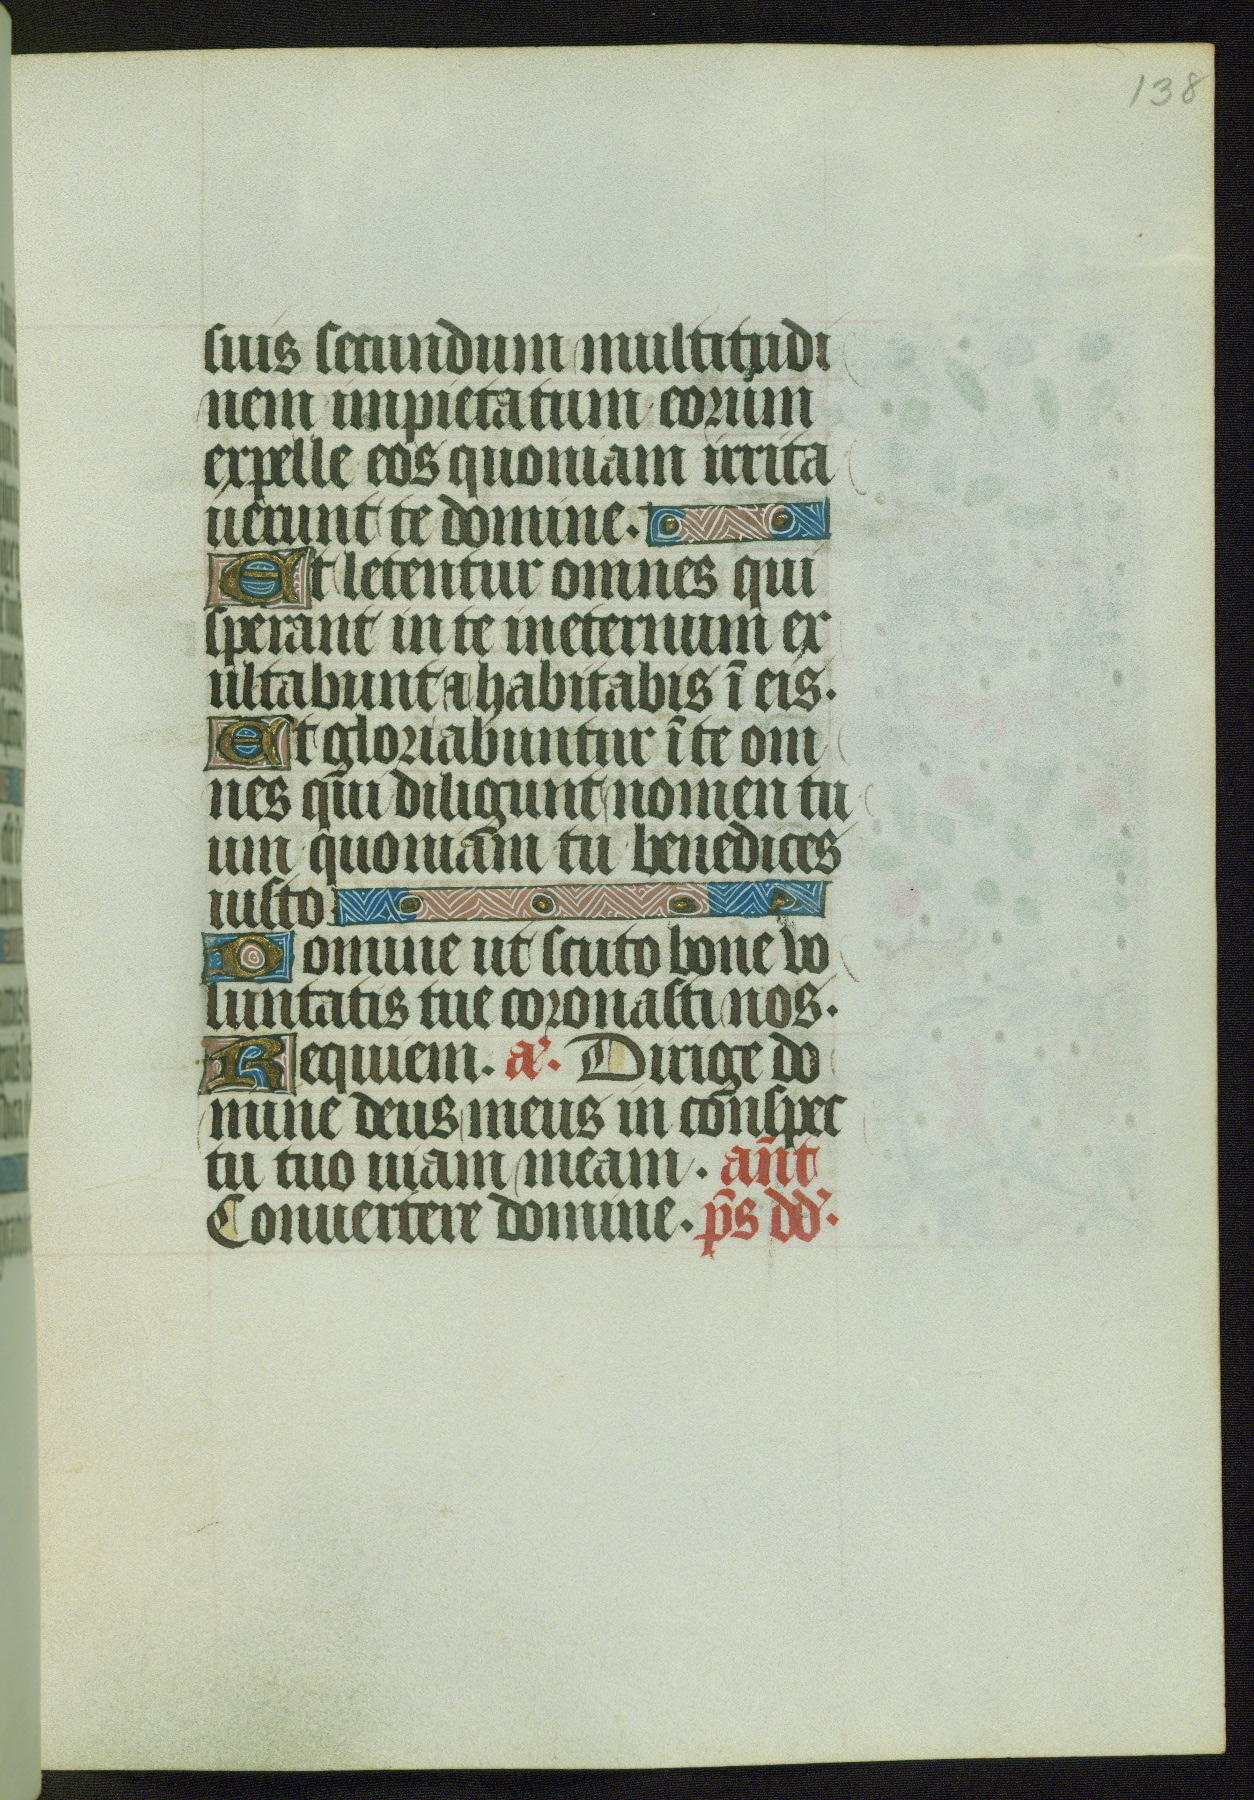 138
suis secundum multitudi
nem impietatum eorum
expelle eos quoniam irrita
uerunt te domine.
Et letentur omnes qui
sperant in te ineternum ex
ultabunt ⁊ habitabis ī eis.
Et gloriabuntur ī te om
nes qui diligunt nomen tu
um quoniam tu benedices
iusto
Domine ut scuto bone vo
luntatis tue coronasti nos.
Requiem. a͛. Dirige do
mine deus meus in conspec
tu tuo uiam meam. an̄t
Conuertere domine. p̄s dd͛.